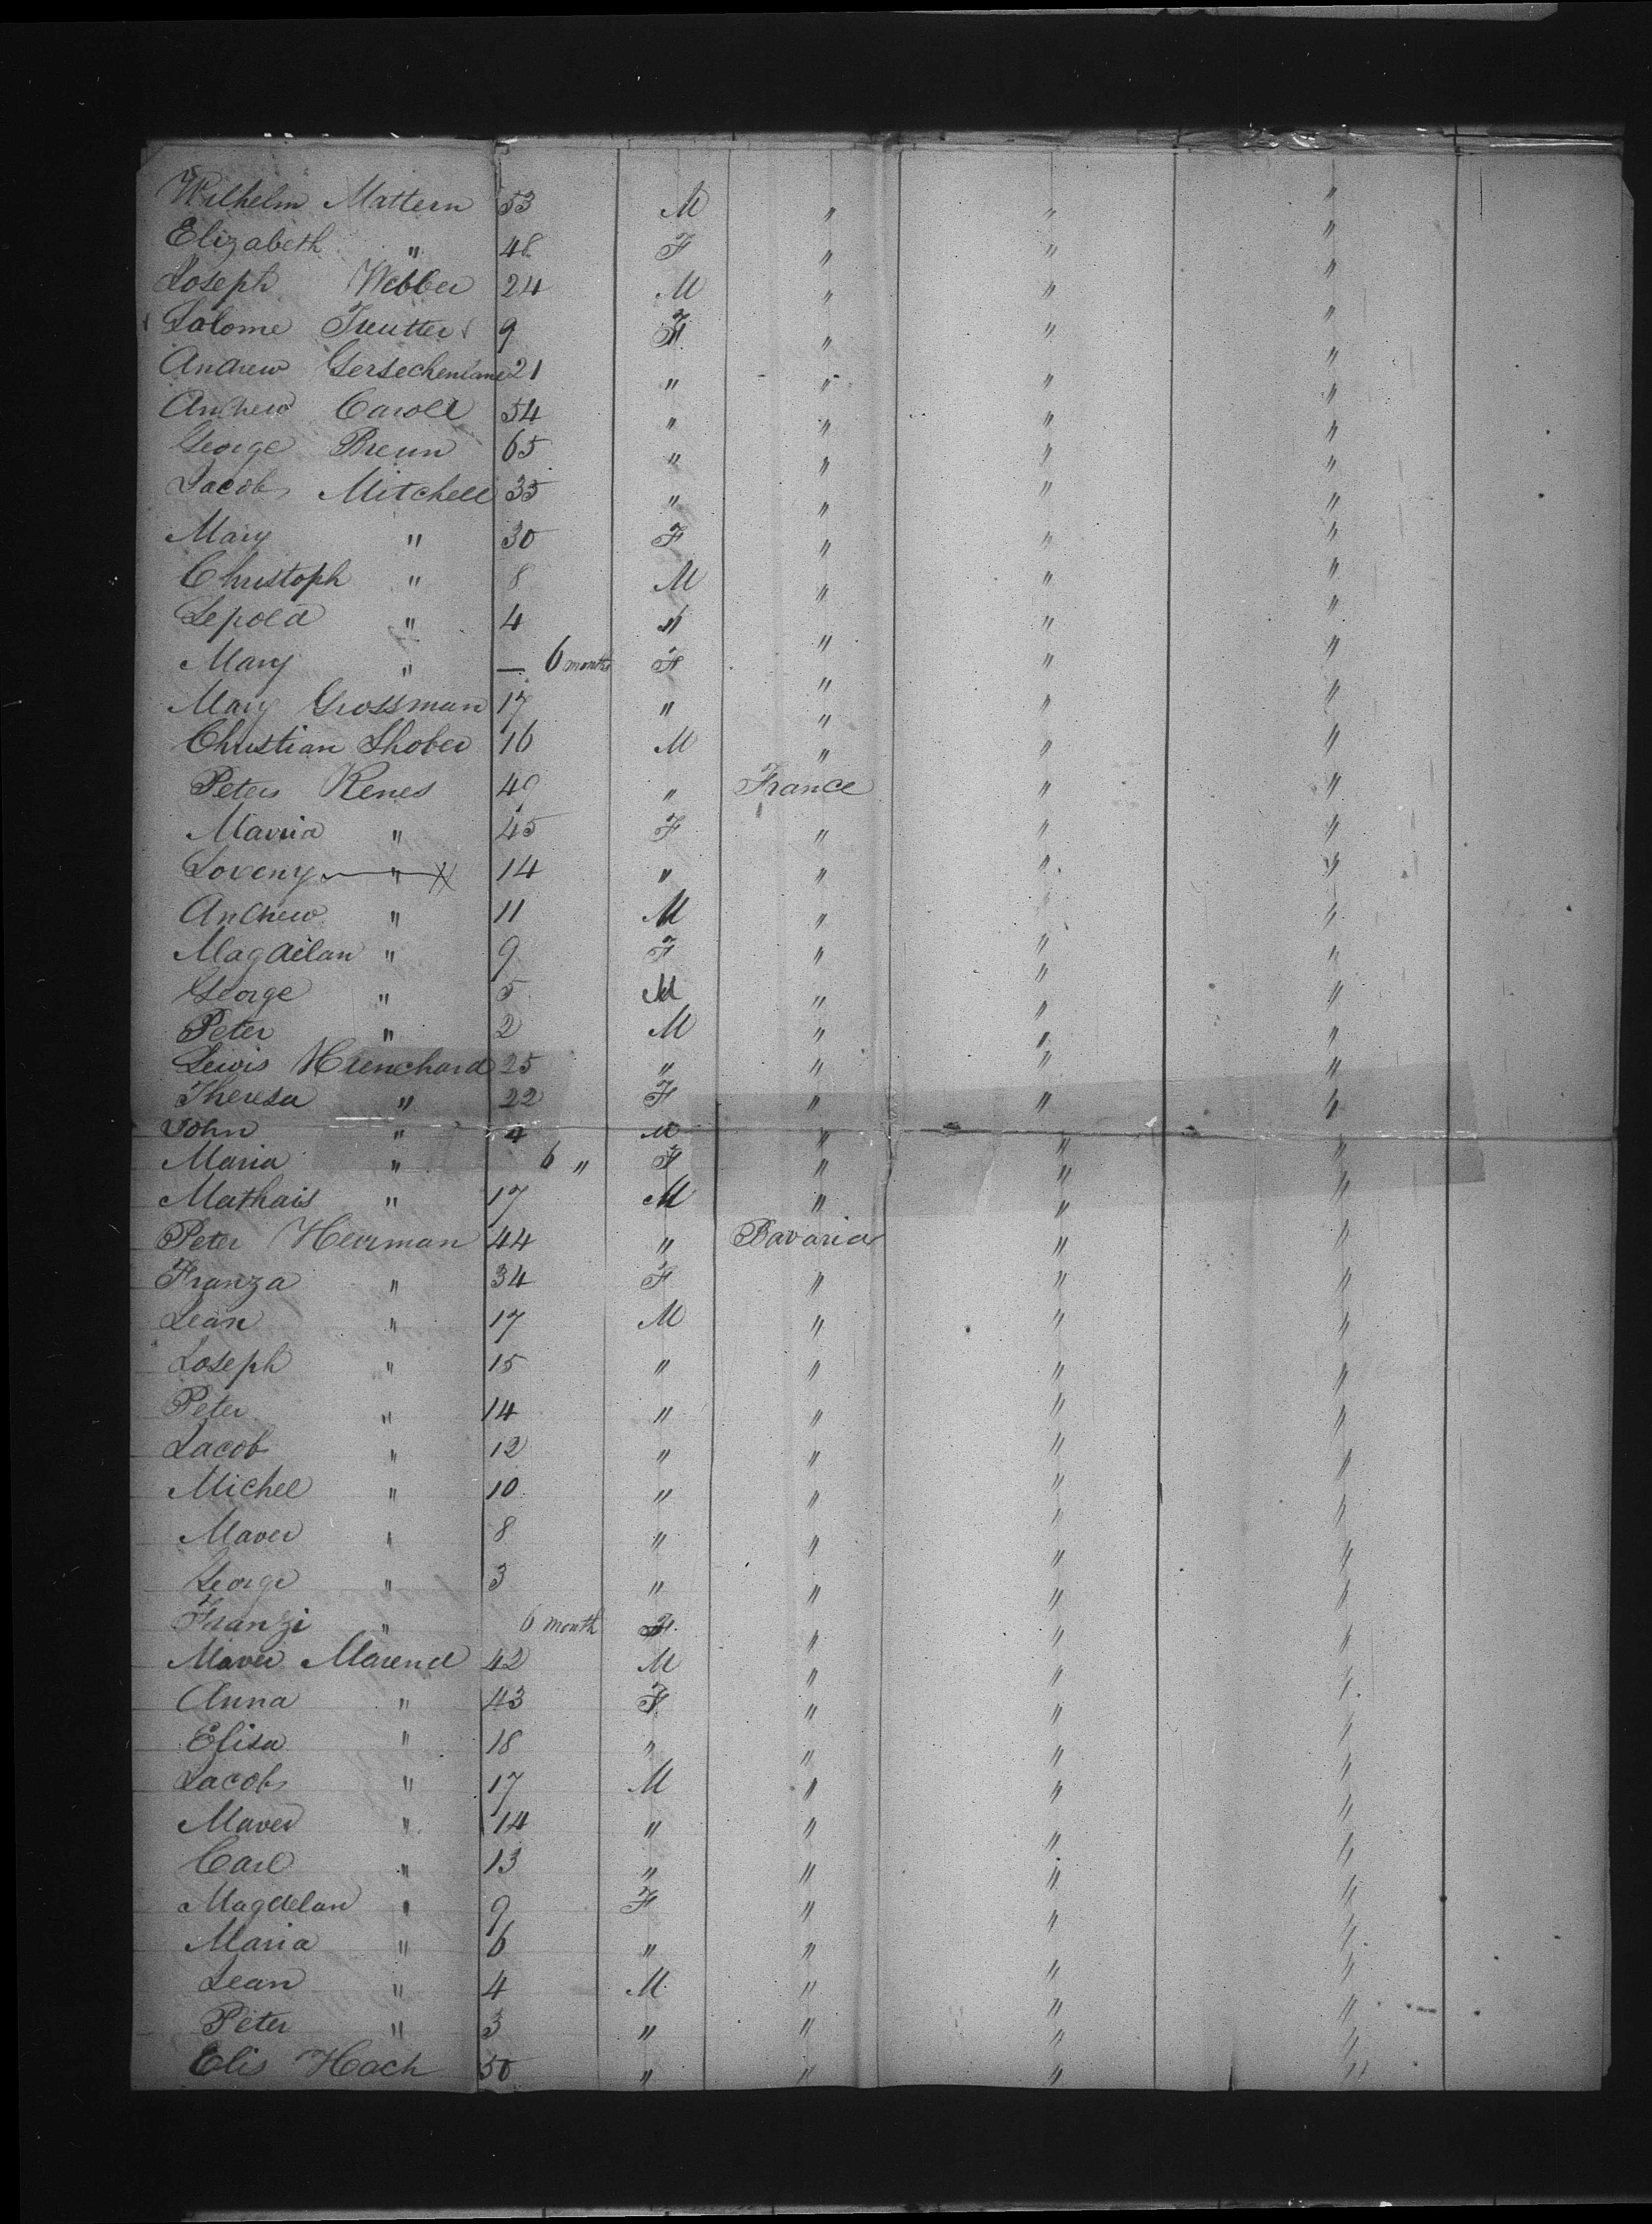 Wilhelm Mattern 53 M " " "
Elizabeth " 48 F " " "
Joseph Webber 24 M " " "
Salome Treutter 9 F " " "
Andrew Gersechenlane 21 " " " "
Andrew Caroll 54 " " " "
George Breun 65 " " " "
Jacob Mitchell 35 " " " "
Mary " 30 F " " "
Christoph " 8 M " " "
Lepold " 4 " " " "
Mary " — 6 months F " " "
Mary Grossman 17 " " " "
Christian Shober 16 M " " "
Peter Renes 49 " France " "
Marria " 45 F " " "
Loveny " 14 " " " "
Andrew " 11 M " " "
Magdilan " 9 F " " "
George " 5 M " " "
Peter " 2 M " " "
Lewis Hienchard 25 " " " "
Theresa " 22 F " " "
John " 4 M " " "
Maria " 6 " F " " "
Mathais " 17 M " " "
Peter Herrman 44 " Bavaria " "
Franza " 34 F " " "
Jean " 17 M " " "
Joseph " 15 " " " "
Peter " 14 " " " "
Jacob " 12 " " " "
Michel " 10 " " " "
Maver " 8 " " " "
George " 3 " " " "
Franzi " 6 month F " " "
Maver Marend 42 M " " "
Anna " 43 F " " "
Elisa " 18 " " " "
Jacob " 17 M " " "
Maver " 14 " " " "
Carl " 13 " " " "
Magdelan " 9 F " " "
Maria " 6 " " " "
Jean " 4 M " " "
Peter " 3 " " " "
Elis Hach 50 " " " "